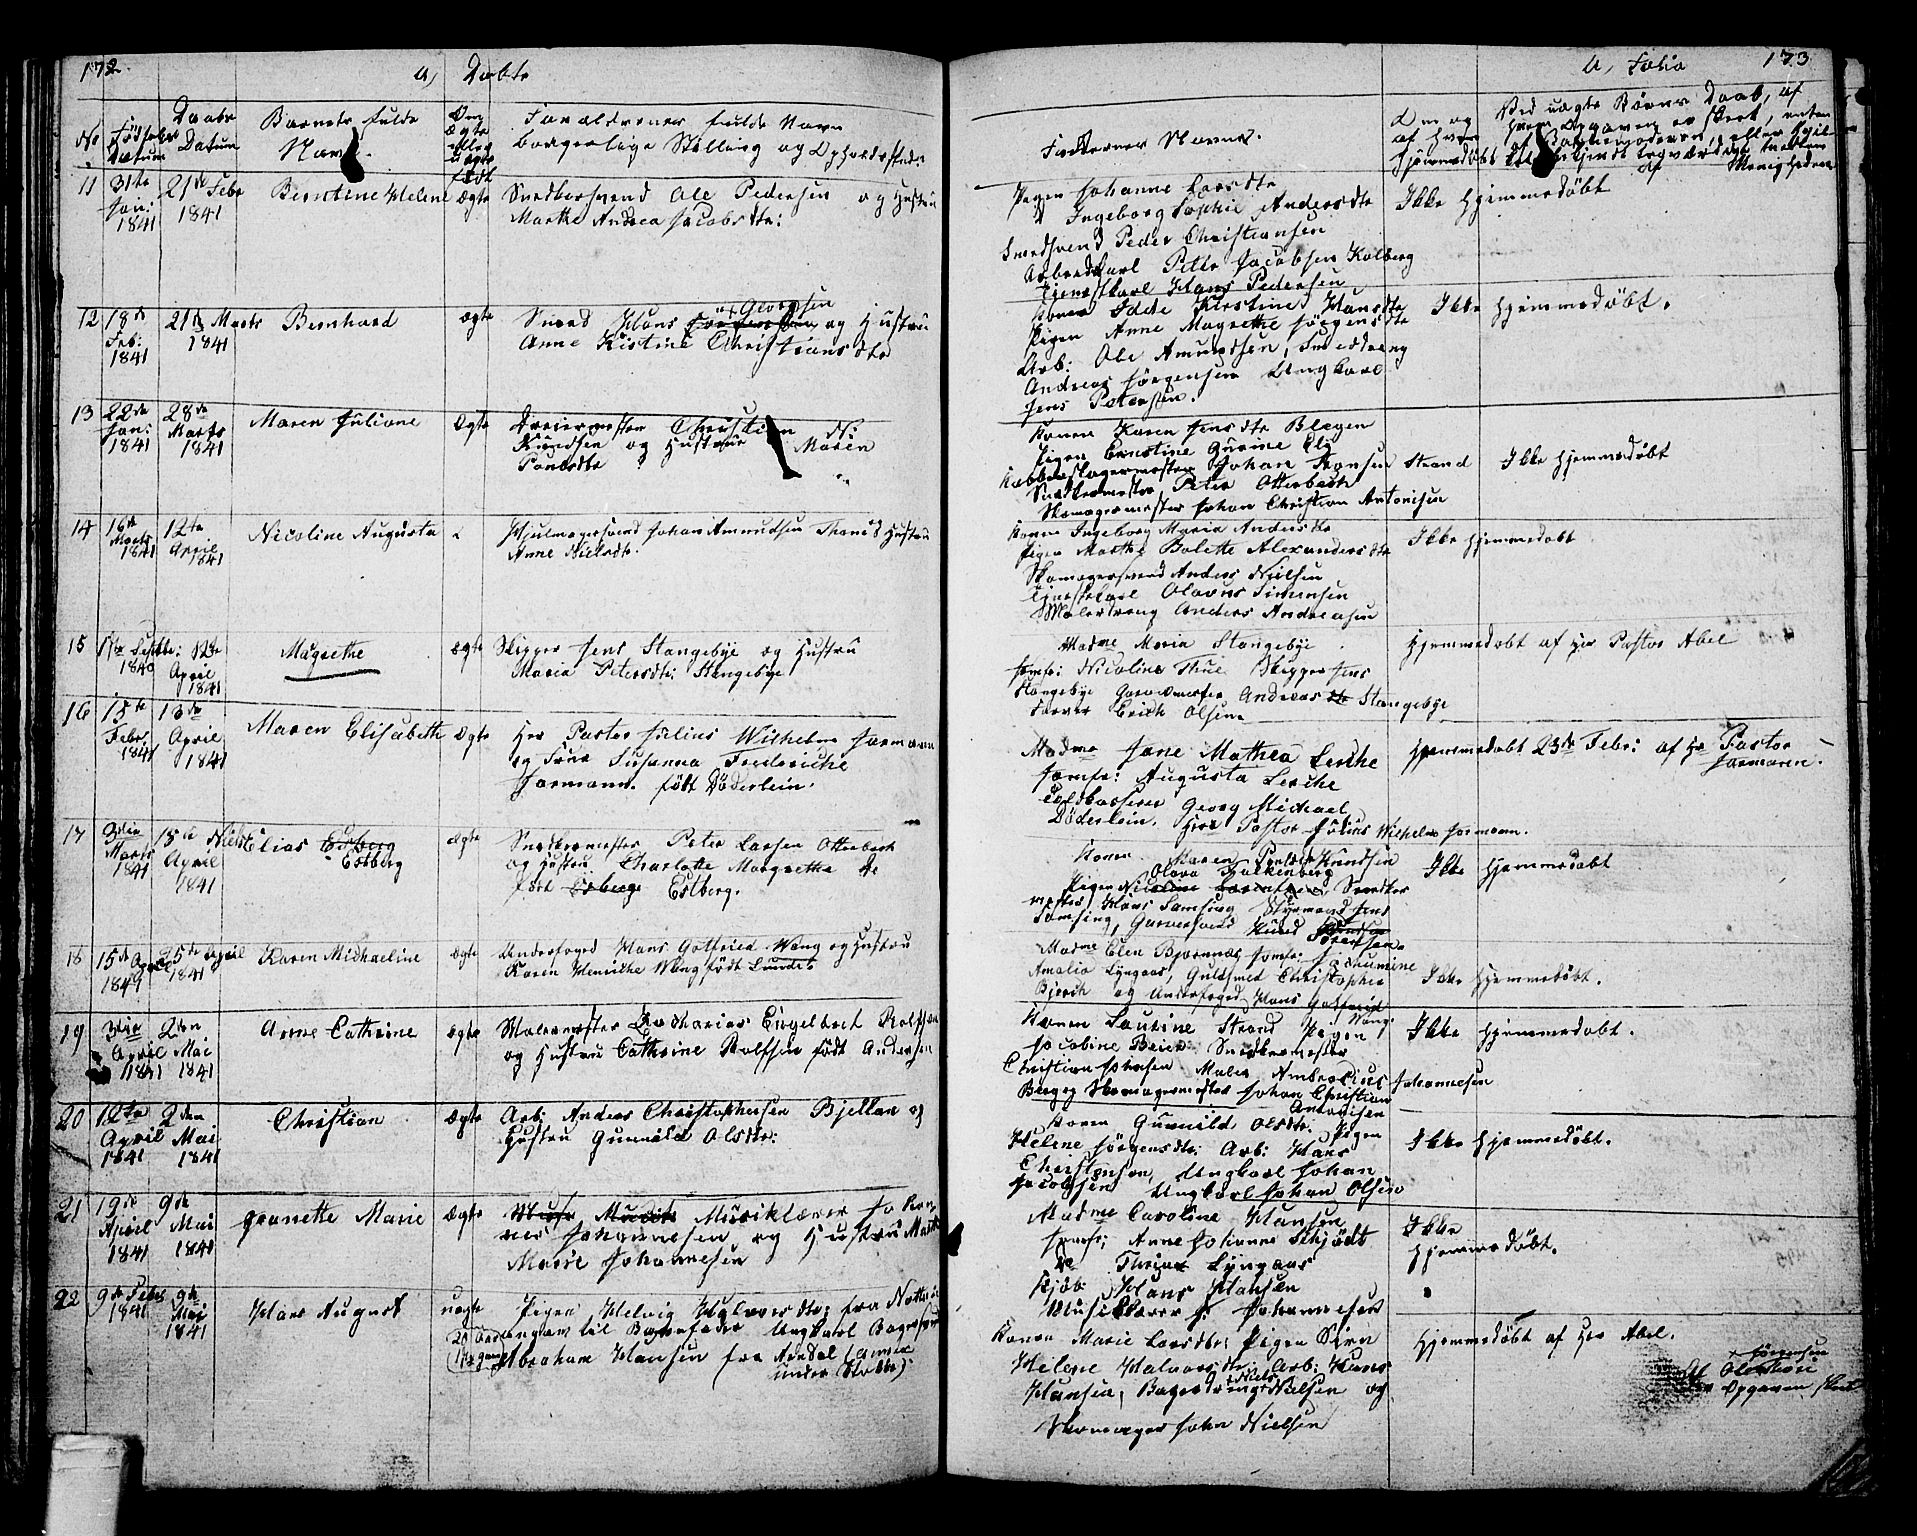 172.
a, Døbte
No
Fødsels Datum
Daabs Datum
Barnets fulde Navn.
Om ægte eller uægte født
Forældrenes fulde Navn
borgerlige Stilling og Opholdssted
11
31te Jan: 1841
21de Febr 1841
Berntine Helene
Ægte
Snedkersvend Ole Pedersen og Hustru
Marthe Andrea Jacobsdtr:
12
18de Feb: 1841
21de Marts 1841
Bernhard
ægte
Smed Hans Georgsen og Hustru
Anne Kistine Christiansdtr
13
22de Jan: 1841
28de Marts 1841
Maren Juliane
Ægte
Dreiermester Christian
Knudsen og Hustrue Maren
Poulsdtr
14
16de Marts 1841
12te April 1841
Nicoline Augusta
Hjulmagersvend Johan Amundsen Hustru
Anne Nielsdtr.
15
1840
12te April 1841
Magrethe
Ægte
Skipper Jens Stangebye og Hustru
Maria Petersdtr: Stangebye
16
15de Febr. 1841
13de April 1841
Maren Elisabeth
Ægte
Her Pastor Julius Wilhelm Jormann
og Frue Susanna Frederiche
Jormann. født Döderlein.
17
3die Marts 1841
15de April 1841
Niels Elias Esberg
Estberg
ægte
Snedkermester Peter Larsen Otterbech
og Hustru Charlotte Margrethe
født Esberg Estberg.
18
15de April 1841
25de April 1841
Karen Michaeline
Ægte
Underfoged Hans Gotfried Wang og Hustru
Karen Henriche Wang født Lunde
19
3die April 1841
2den Mai 1841
Anne Cathrine
ægte
Malermester Zacharias Engelbret Rolfsen
og Hustru Cathrine Rolfsen født Andersen
20
12te April 1841
2den Mai 1841
Christian
Ægte
Arb: Anders Christophersen Bjellan og
Hustru Gunnild Olsdtr:
21
19de April 1841
9de Mai 1841
Jeanette Marie
Ægte
Musiklærer Johan-
nes Johannesen og Hustru Marthe
Marie Johannesen
22
9de Febr 1841
9de Mai 1841
Hans August
uægte
Pigen Helvig Halvorsdtr: fra
angav til Barnefader Ungkarl Bager
Abraham Hansen fra Arendal (Annex
under
a, Folio 173
Faddernes Navne.
Om og af hvem Hjemmedøbt
Ved uægte Børns Daab, af
hvem Opgaven er skeet, enten
af Barnemoderen, eller
af Menigheden
Pigen Johanne Larsdtr
Ingeborg Sophie Andersdtr
Smedsvend Peder Christiansen
Arbeidskarl Peter Jacobsen Kolberg
Tjenestkarl Hans Pedersen
Ikke Hjemmedøbt
Konen Idde Kirstine Hansdtr
Pigen Anne Magrethe Jørgensdtr
Arb: Ole Amundsen, Smeddreng
Andreas Jørgensen Ungkarl
Jens Petersen.
Ikke Hjemmedøbt.
Konen Karen Jensdtr Blegen
Pigen Ernstine Gurine Ely
Kobberslagermester Johan Hansen Strand
Snedkermester Peter Otterbech
Skomagermester Johan Christian Antonisen
Ikke Hjemmedøbt
Konen Ingeborg Maria Andersdtr
Pigen Marthe Bolette Alexandersdtr
Skomagersvend Anders Nielsen
Tjenestekarl Olavus Simensen
Malerdreng Anders Andreasen
Ikke Hjemmedøbt
Madme Maria Stangebye
Jomfr: Nicoline Thue Skipper Jens
Stangebye Garvermester Andreas Stangebye
Farver Erich Olsen
Hjemmedøbt af Hr Pastor Abel
Madme Jane Mathea Lerche
Jomfr: Augusta Lerche
Toldkasserer Georg Michael
Döderlein. Herr Pastor Julius Wilhelm Jormann.
Hjemmedøbt 23de Febr: af Hr Pastor
Jormann.
Konen Maren Poulsdtr Knudsen
Olava Falkenberg
Pigen Nicoline Snedker
mester Hans Samsing Styrmand Jens
Samsing, Garversvend Knud
Sørensen
Ikke Hjemmedøbt
Madme Elen Bjørnnæs Jomfr:
Amalia Lyngaas, Guldsmed Christopher
Bjerch og Underfoged Hans Gotfried
Wang
Ikke Hjemmedøbt.
Konen Laurine Strand Pigen
Jacobine Beier Snedkermester
Christian Johnsen Maler Ambrosius Johannesen
Berg og Skomagermester Johan Christian
Antonisen
Ikke Hjemmedøbt.
Konen Gunnild Olsdtr: Pigen
Helene Jørgensdtr: Arb: Hans
Christensen, Ungkarl Johan
Jacobsen Ungkarl Johan Olsen
Ikke Hjemmedøbt.
Madme Caroline Hansen
Jomfr: Anne Johanne Schjødt
Do Thrine Lyngaas
Kjøb: Hans Hansen
Musiklærer J. Johannesen
Ikke
Hjemmedøbt.
Konen Marie Larsdtr: Pigen Siren
Helene Halvorsdtr: Arb: Hans
Hansen, Bagerdreng Niels Nielsen og
Skomager John Nielsen
Hjemmedøbt af Hr Abel.
Jørgensen
Opgaven skeet